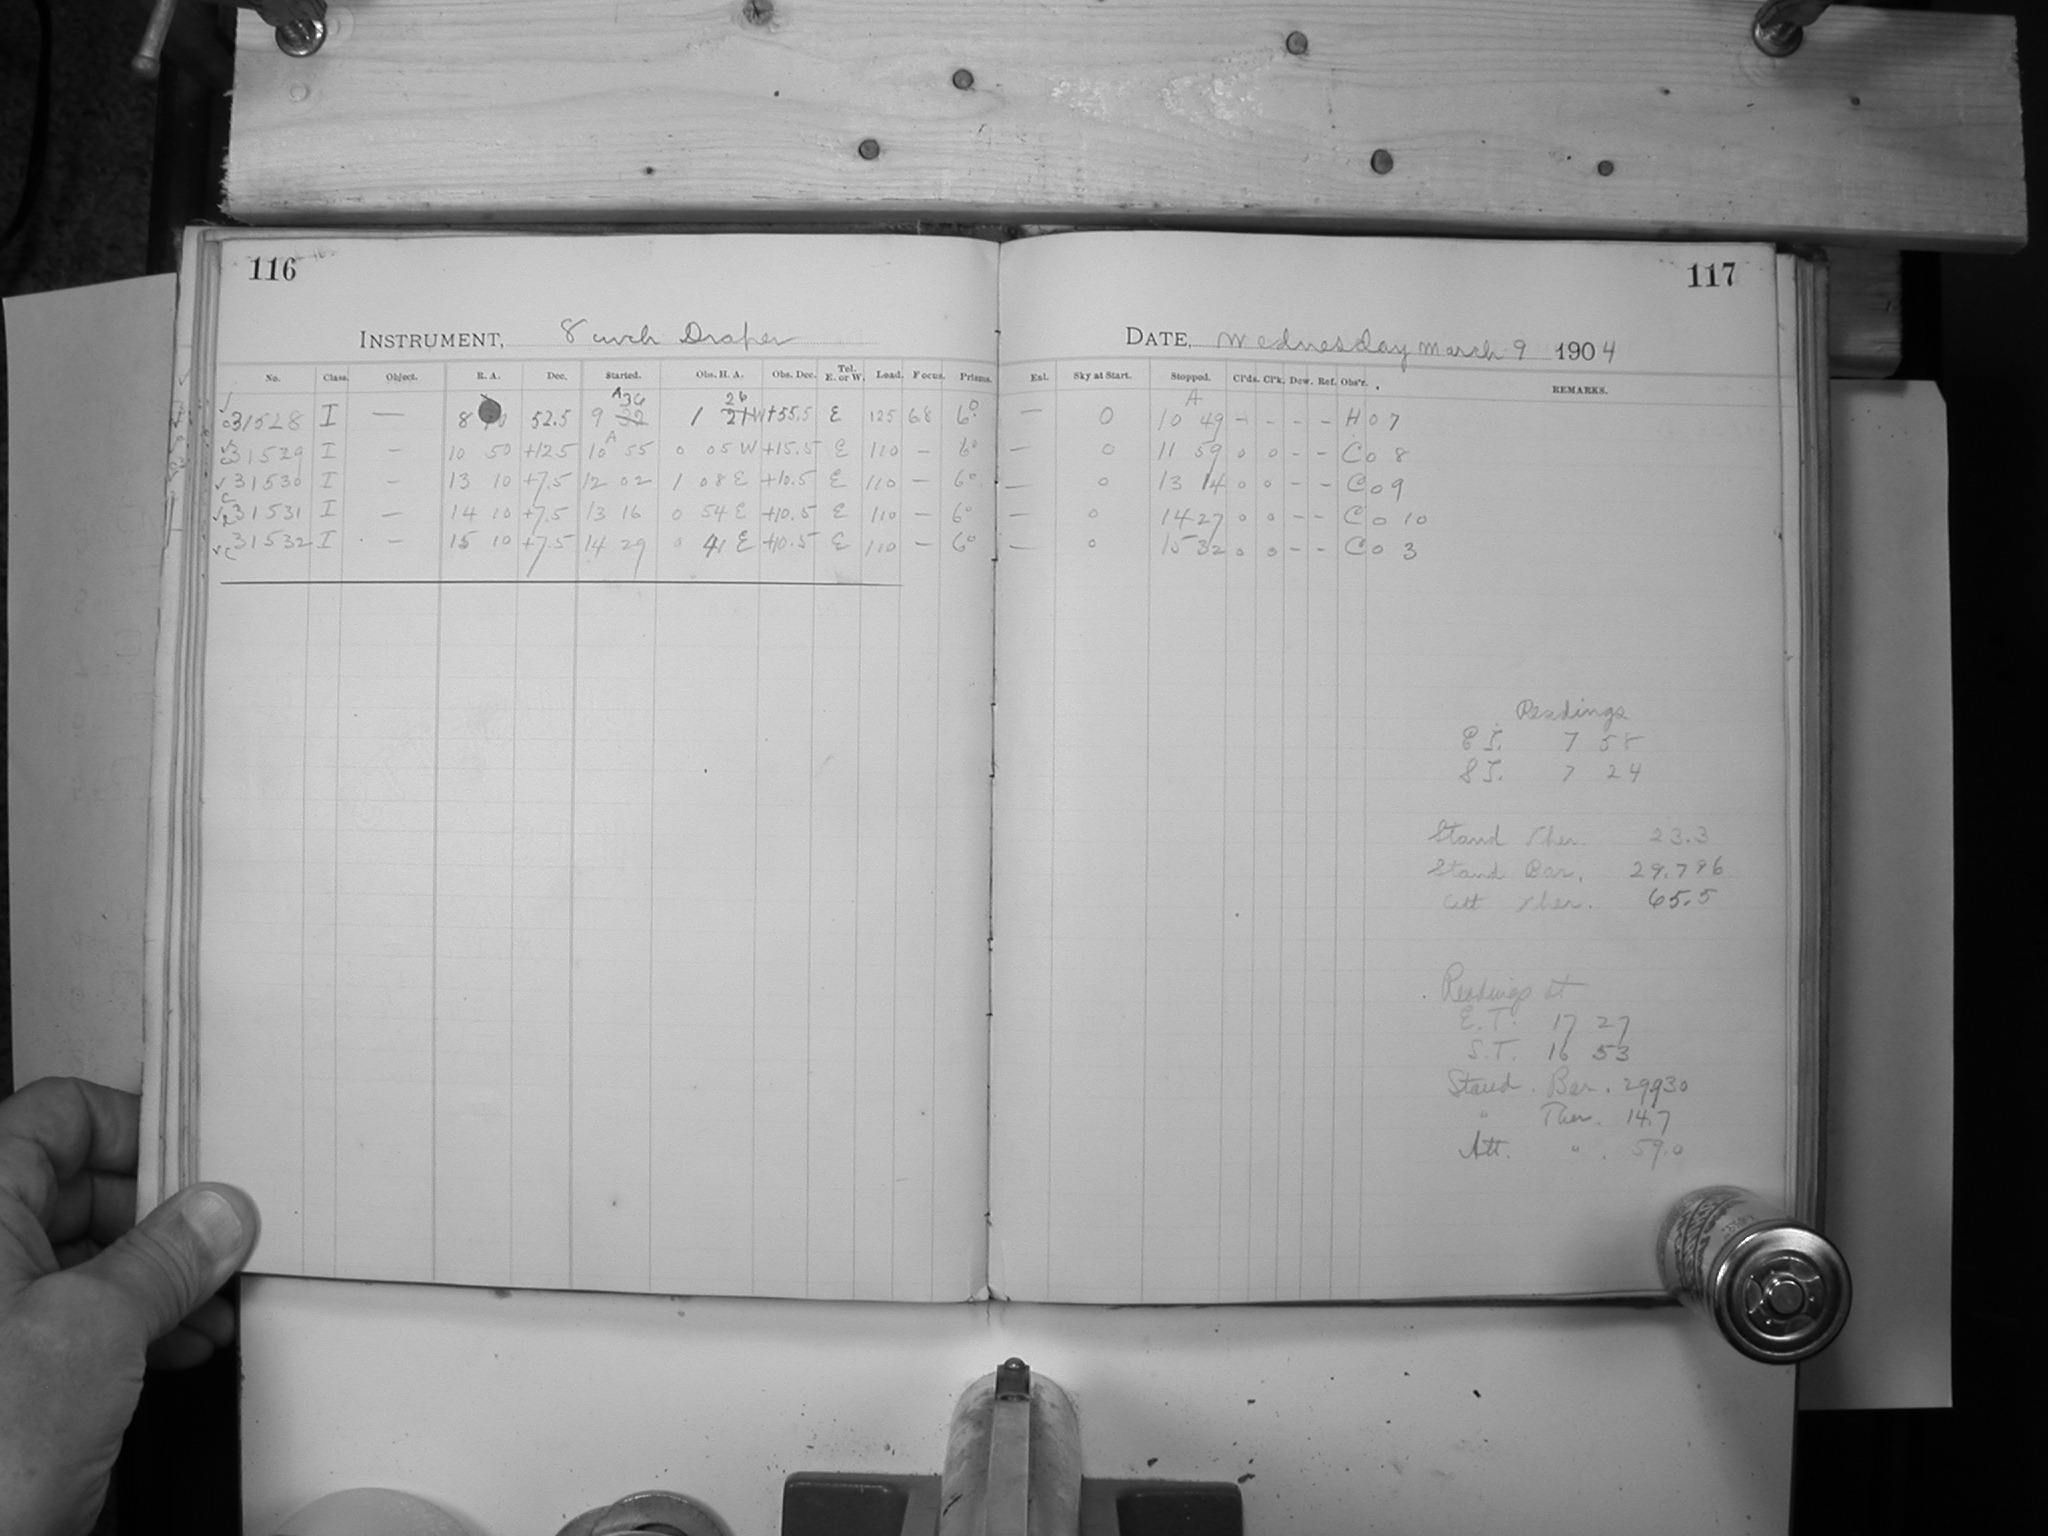 116
INSTRUMENT, 8 inch Draper
No. Class. Object. R. A. Dec. Started. Obs. H. A. Obs. Dec. Tel. E. or W. Lead. Focus. Prisms.
A 36 26
31528 I — 8 52.5 9 32 1 21 W +55.5 E 125 68 6°
A
31529 I — 10 50 +12.5 10 55 0 05 W +15.5 E 110 — 6°
31530 I — 13 10 +7.5 12 02 1 08 E +10.5 E 110 — 6°
31531 I — 14 10 +7.5 13 16 0 54 E +10.5 E 110 — 6°
31532 I — 15 10 +7.5 14 29 0 41 E +10.5 E 110 — 6°
117
DATE, Wednesday March 9 1904
Enl. Sky at Start. Stopped. Cl'ds. Cl'k. Dew. Ref. Obs'r. REMARKS.
A
— 0 10 49 - - - - H 0 7
— 0 11 59 0 0 - - C 0 8
— 0 13 14 0 0 - - C 0 9
— 0 14 27 0 0 - - C 0 10
— 0 15 32 0 0 - - C 0 3
Readings
E T. 7 58
S T. 7 24
Stand Ther. 23.3
Stand Bar. 29.796
Att Ther. 65.5
Readings at
E. T. 17 27
S. T. 16 53
Stand. Bar. 29930
" Ther. 14.7
Att. " . 59.0